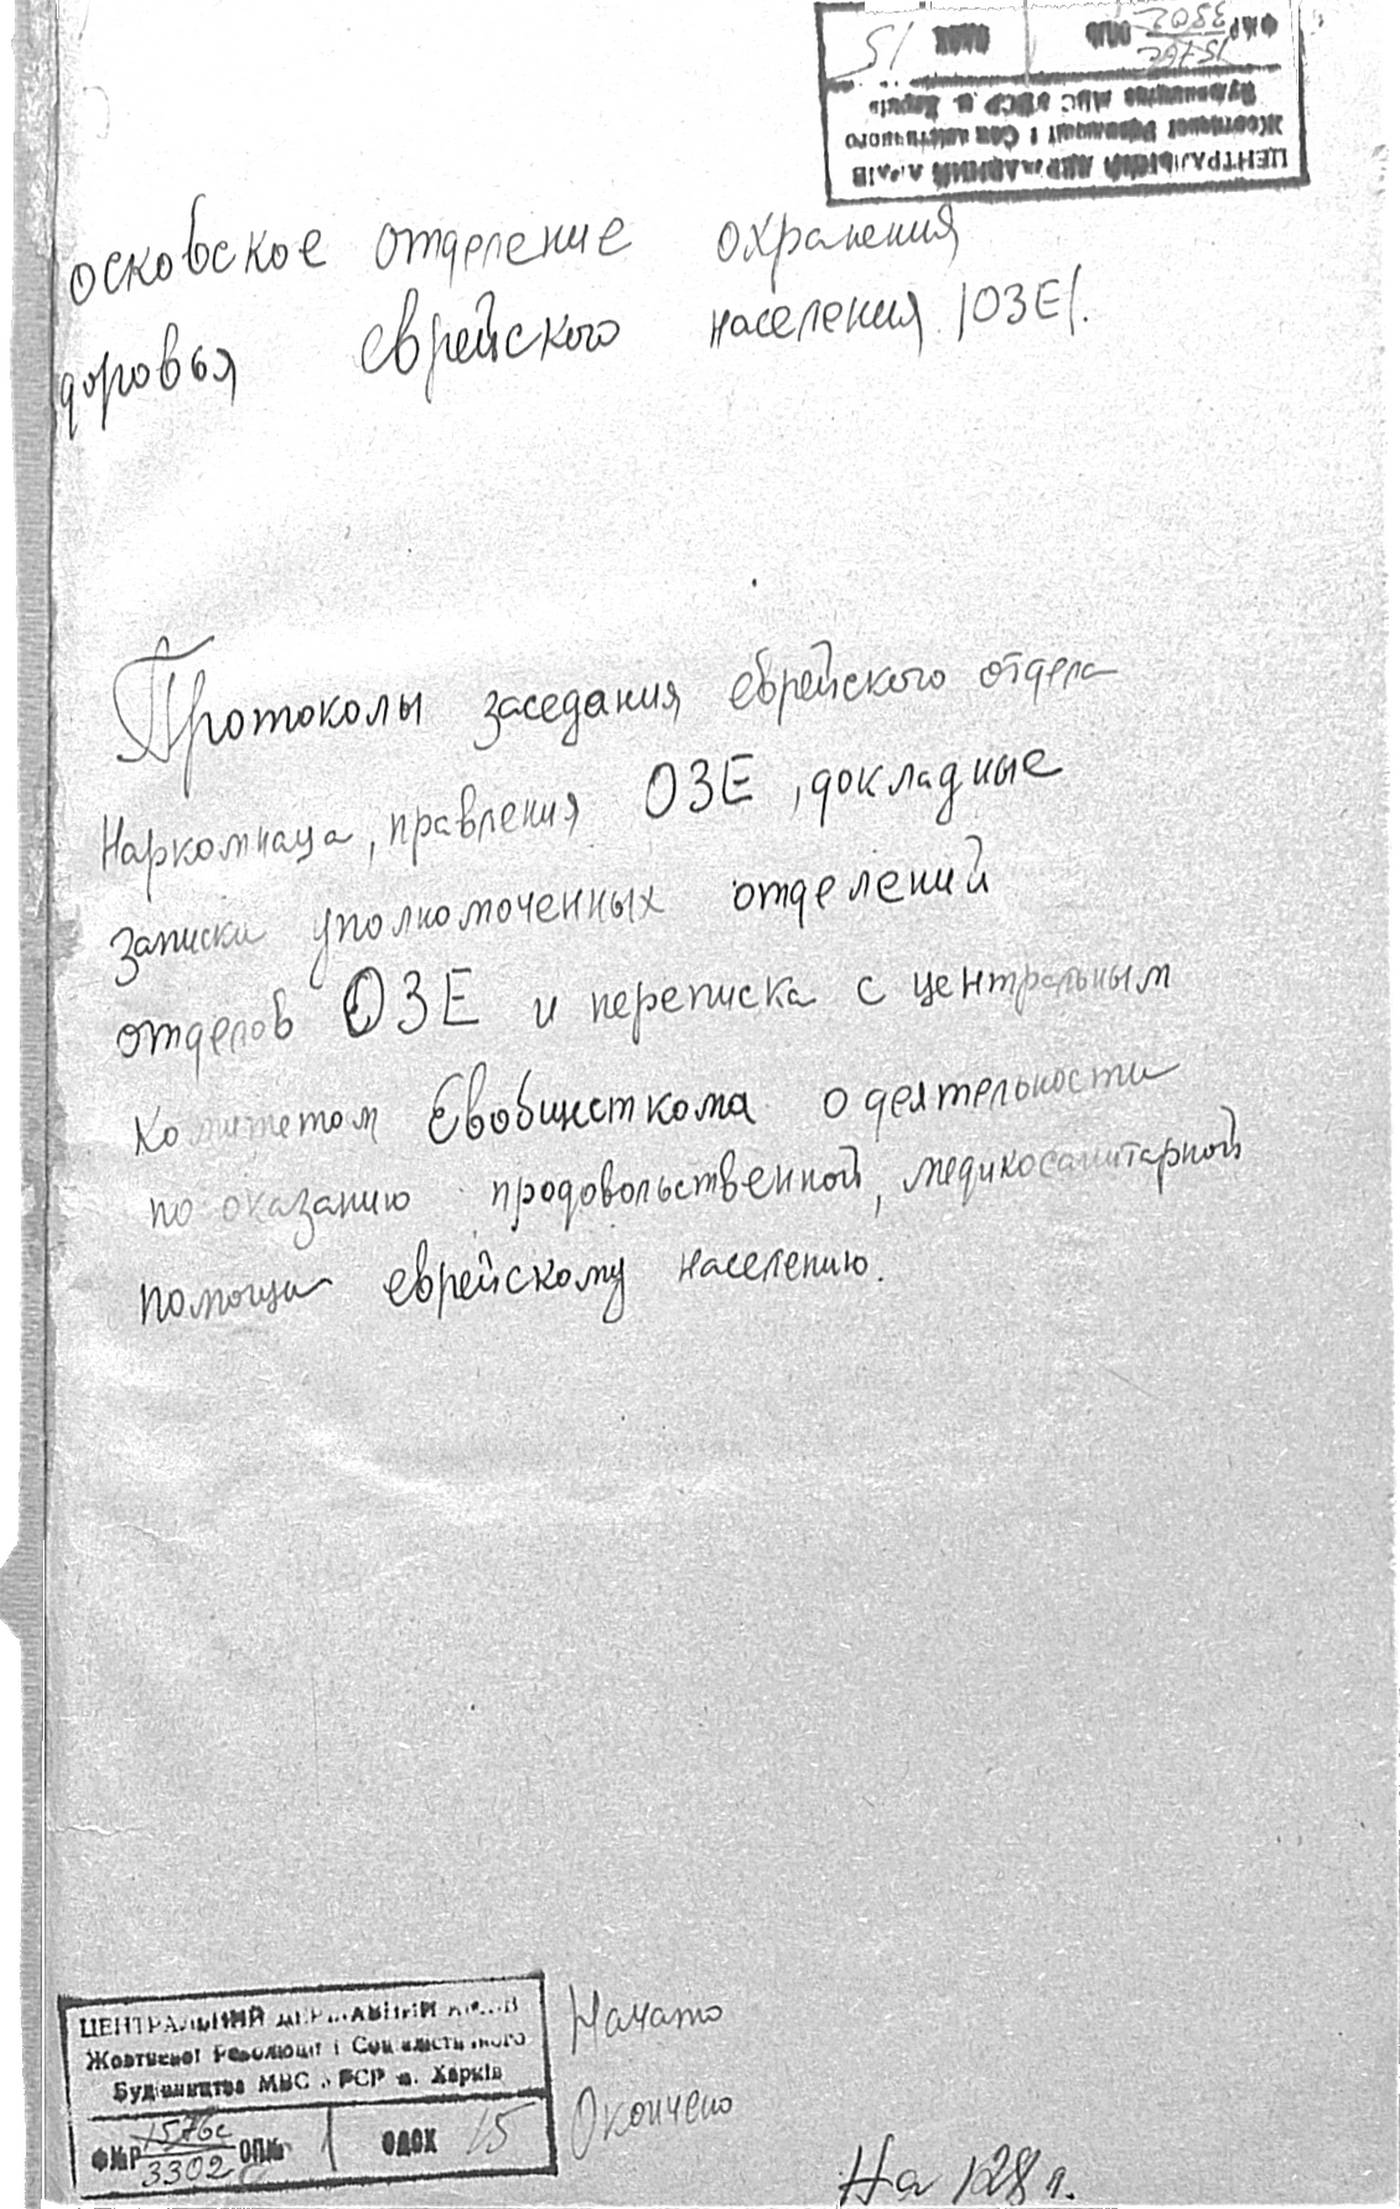 ЦЕНТРАЛЬНИЙ ДЕРЖАВНИЙ АРХІВ
Жовтневої Революції і Соціалістичного
Будівництва МВС УРСР м. Харків
ФМР 1576с 3302 ОПМ ОДОХ 15
осковское отделение охранения
доровья еврейского населения /ОЗЕ/.
Протоколы заседания еврейского отдела
Наркомнаца, правления ОЗЕ, докладные
записки уполномоченных отделений
отделов ОЗЕ и переписка с центральным
комитетом Евобщесткома о деятельности
по оказанию продовольственной, медикосанитарной
помощи еврейскому населению.
ЦЕНТРАЛЬНИЙ ДЕРЖАВНИЙ АРХІВ
Жовтневої Революції і Соціалістичного
Будівництва МВС УРСР м. Харків
ФМР 1576с 3302 ОПМ 1 ОДОХ 15
Начато
Окончено
На 128 л.